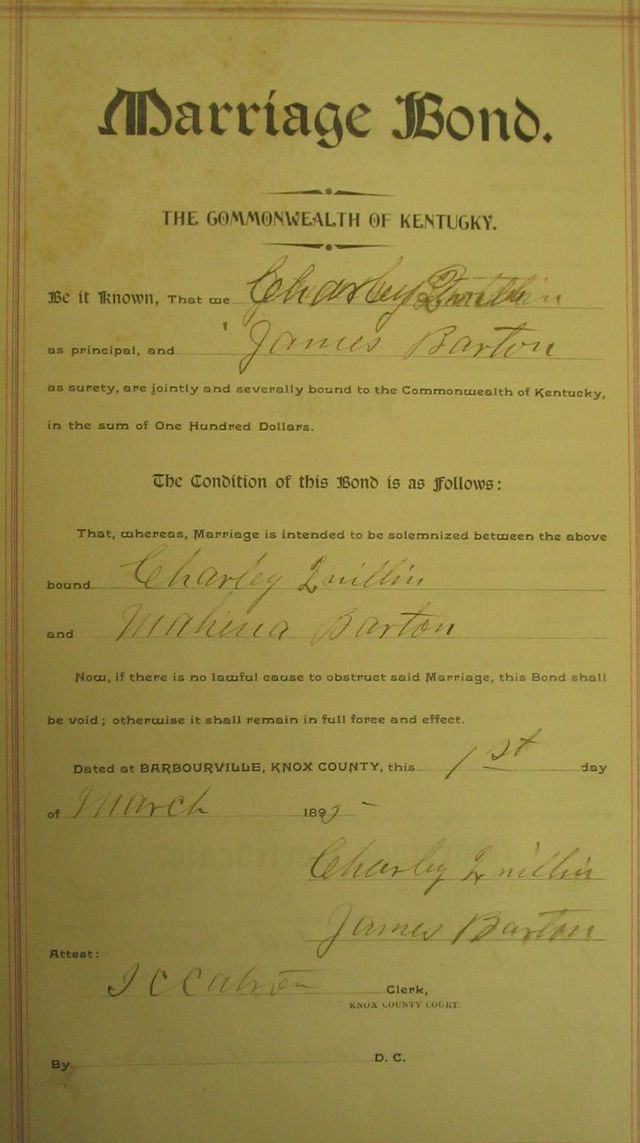 Marriage Bond.
THE COMMONWEALTH OF KENTUCKY.
Be it Known, That we Charley Quillin
as principal, and James Barton
as surety, are jointly and severally bound to the Commonwealth of Kentucky,
in the sum of One Hundred Dollars.
The Condition of this Bond is as Follows:
That, whereas, Marriage is intended to be solemnized between the above
bound Charley Quillin
and Barton
Now, if there is no lawful cause to obstruct said Marriage, this Bond shall
be void; otherwise it shall remain in full force and effect.
Dated at BARBOURVILLE, KNOX COUNTY, this 1st day
of March
Charley Quillin
James Barton
Attest:
Clerk,
KNOX COUNTY COURT.
By D. C.